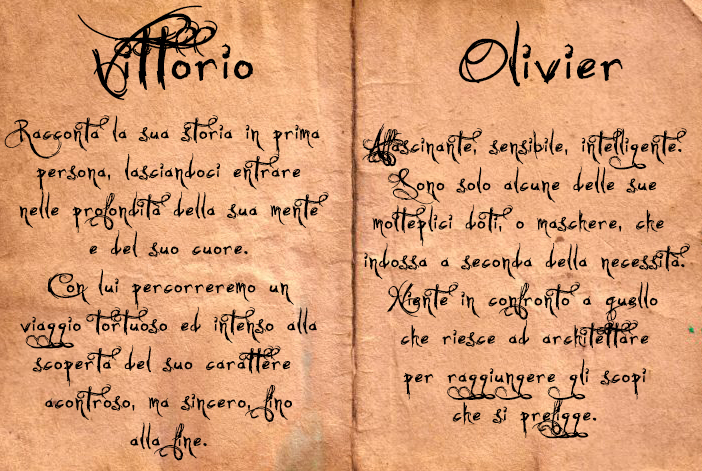 Vittorio
Racconta la sua storia in prima
persona, lasciandoci entrare
nelle profondità della sua mente
e del suo cuore.
Con lui percorreremo un
viaggio tortuoso ed intenso alla
scoperta del suo carattere
scontroso, ma sincero, fino
alla fine.
Olivier
Affascinante, sensibile, intelligente.
Sono solo alcune delle sue
molteplici doti, o maschere, che
indossa a seconda della necessità.
Niente in confronto a quello
che riesce ad architettare
per raggiungere gli scopi
che si prefigge.